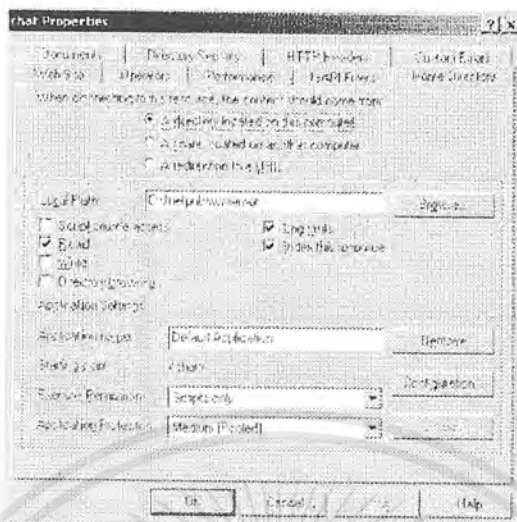 chat Properties
Documents Directory Security HTTP Headers Custom Errors
Web Site Operators Performance ISAPI Filters Home Directory
When connecting to this resource, the content should come from:
A directory located on this computer
A share located on another computer
A redirection to a URL
Local Path: Browse...
Script source access Log visits
Read Index this resource
Write
Directory browsing
Application Settings
Application name: Default Application Remove
Starting point:
Configuration...
Execute Permissions: Scripts only
Application Protection: Medium (Pooled)
OK Cancel Help